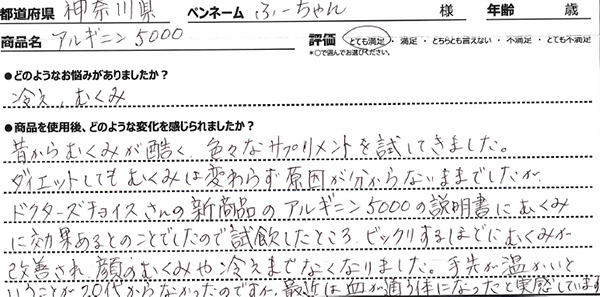 都道府県 神奈川県 ペンネーム ふーちゃん 様 年齢 歳
商品名 アルギニン5000 評価 とても満足・満足・どちらとも言えない・不満足・とても不満足
*○で囲んでお選びください。
●どのようなお悩みがありましたか？
冷え、むくみ
●商品を使用後、どのような変化を感じられましたか？
昔からむくみが酷く、色々なサプリメントを試してきました。
ダイエットしてもむくみは変わらず原因が分からないままでしたが、
ドクターズチョイスさんの新商品のアルギニン5000の説明書にむくみ
に効果あるとのことでしたので試飲したところ、ビックリするほどにむくみが
改善され、顔のむくみや冷えまでなくなりました。手先が温かいと
いうことが20代からなかったのですが、最近は血が通う体になったと実感しています